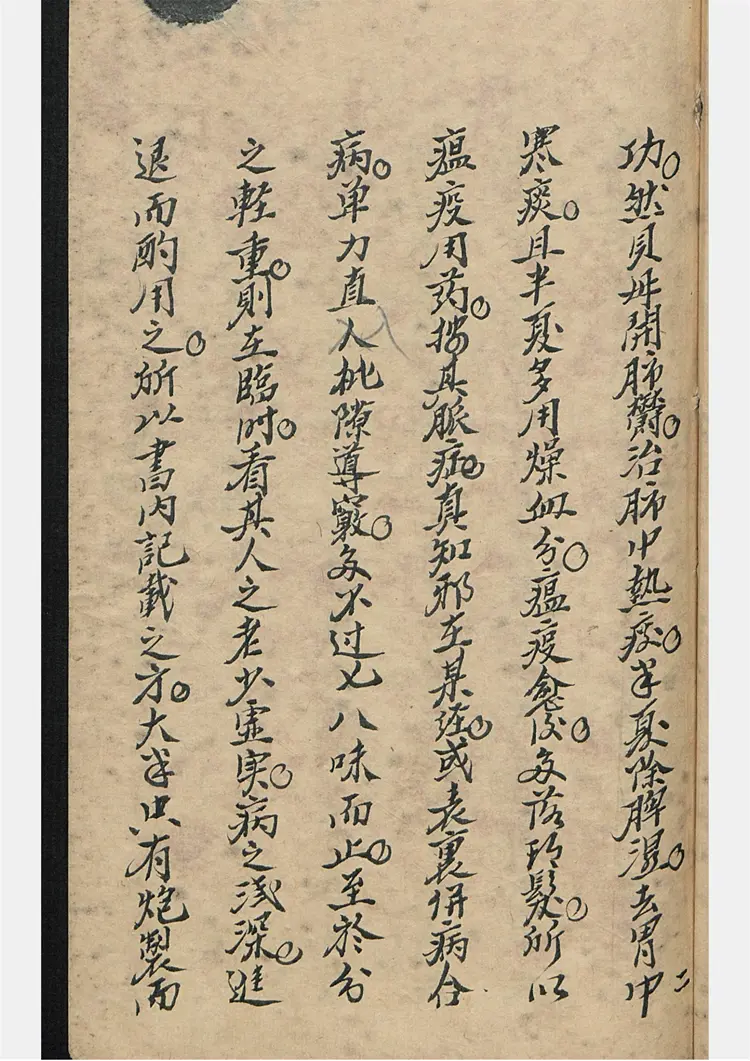 功。然貝母開肺鬱。治肺中熱痰。半夏除脾濕。去胃中
寒痰。且半夏多用燥血分。瘟疫愈后多落頭髮。所以
瘟疫用药。揆其脈症。真知邪在某経。或表裏併病合
病。单力直入批隙導竅。多不过七八味而止。至於分
之軽重。則在臨时。看其人之老少虚実。病之浅深。進
退而酌用之。所以書内記載之方。大半只有炮製而